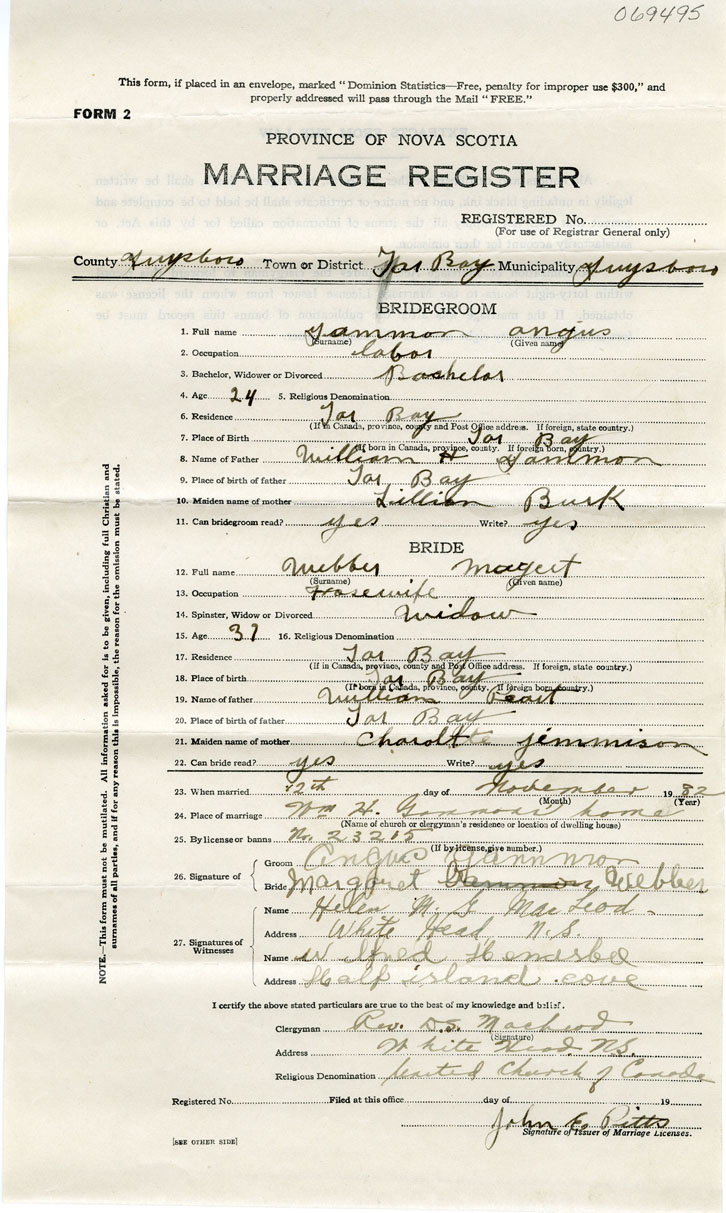 069495
This form, if placed in an envelope, marked "Dominion Statistics—Free, penalty for improper use $300," and
properly addressed will pass through the Mail "FREE."
FORM 2
PROVINCE OF NOVA SCOTIA
MARRIAGE REGISTER
REGISTERED No.
(For use of Registrar General only)
County Guysboro Town or District Tor Bay Municipality Guysboro
BRIDEGROOM
1. Full name Gammon angus
(Surname) (Given name)
2. Occupation labor
3. Bachelor, Widower or Divorced Bachelor
4. Age 24 5. Religious Denomination
6. Residence Tor Bay
(If in Canada, province, county and Post Office address. If foreign, state country.)
7. Place of Birth Tor Bay
(If born in Canada, province, county. If foreign born, country.)
8. Name of Father William H Gammon
9. Place of birth of father Tor Bay
10. Maiden name of mother Lillian Burk
11. Can bridegroom read? yes Write? yes
BRIDE
12. Full name Webber
(Surname) (Given name)
13. Occupation
14. Spinster, Widow or Divorced Widow
15. Age 37 16. Religious Denomination
17. Residence Tor Bay
(If in Canada, province, county and Post Office address. If foreign, state country.)
18. Place of birth Tor Bay
(If born in Canada, province, county. If foreign born, country.)
19. Name of father William
20. Place of birth of father Tor Bay
21. Maiden name of mother jemmison
22. Can bride read? yes Write? yes
23. When married 12th day of November 1932
(Month) (Year)
24. Place of marriage Wm H. Gammon's home
(Name of church or clergyman's residence or location of dwelling house)
25. By license or banns No. 23215
(If by license, give number.)
26. Signature of
Groom Angus Gammon
Bride Margaret Gammon Webber
27. Signatures of Witnesses
Name Helen M. G MacLeod
Address White Head N.S.
Name
Address Half island cove
I certify the above stated particulars are true to the best of my knowledge and belief.
Clergyman Rev. D.S. MacLeod
(Signature)
Address White Head N.S.
Religious Denomination United Church of Canada
Registered No. Filed at this office day of 19
John E. Pitts
Signature of Issuer of Marriage Licenses.
[SEE OTHER SIDE]
NOTE.—This form must not be mutilated. All information asked for is to be given, including full Christian and
surnames of all parties, and if for any reason this is impossible, the reason for the omission must be stated.